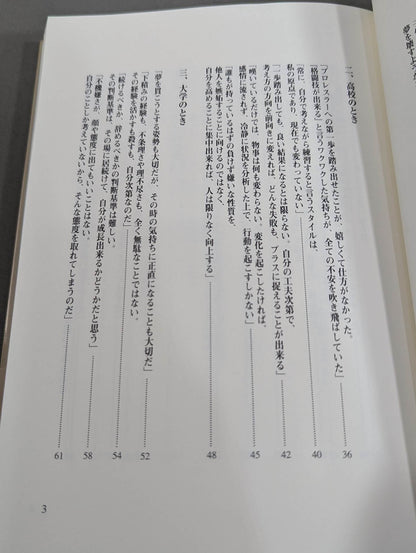 夢を壊すようなことは
二、高校のとき
「プロレスラーへの第一歩を踏み出せたことが、嬉しくて仕方がなかった。
『格闘技が出来る』と言うワクワクした気持ちが、全ての不安を吹き飛ばしていた」
36
「常に、自分で考えながら練習すると言うスタイルは、
私の原点であり、現在でも変わっていない」
40
「一歩踏み出しても、良い結果になるとは限らない。自分の工夫次第で、
考え方の方向を前向きに変えれば、どんな失敗も、プラスに捉えることが出来る」
42
「嘆いているだけでは、物事は何も変わらない。変化を起こしたければ、
感情に流されず、冷静に状況を分析した上で、行動を起こすしかない」
45
「誰もが持っているはずの負けず嫌いな性質を、
他人を嫉妬することに向けるのではなく、
自分を高めることに集中出来れば、人は限りなく向上する」
48
三、大学のとき
「夢を貫こうとする姿勢も大切だが、その時の気持ちに正直になることも大切だ」
52
「下積みの経験も、不条理さや理不尽さも、全く無駄なことではない。
その経験を活かすも殺すも、自分次第なのだ」
54
「続けるべきか、辞めるべきかの判断基準は難しい。
その判断基準は、その場に居続けて、自分が成長出来るかどうかだと思う」
58
「不機嫌さが、顔や態度に出てもいいことはない。
自分のことしか考えていないから、そんな態度を取れてしまうのだ」
61
3